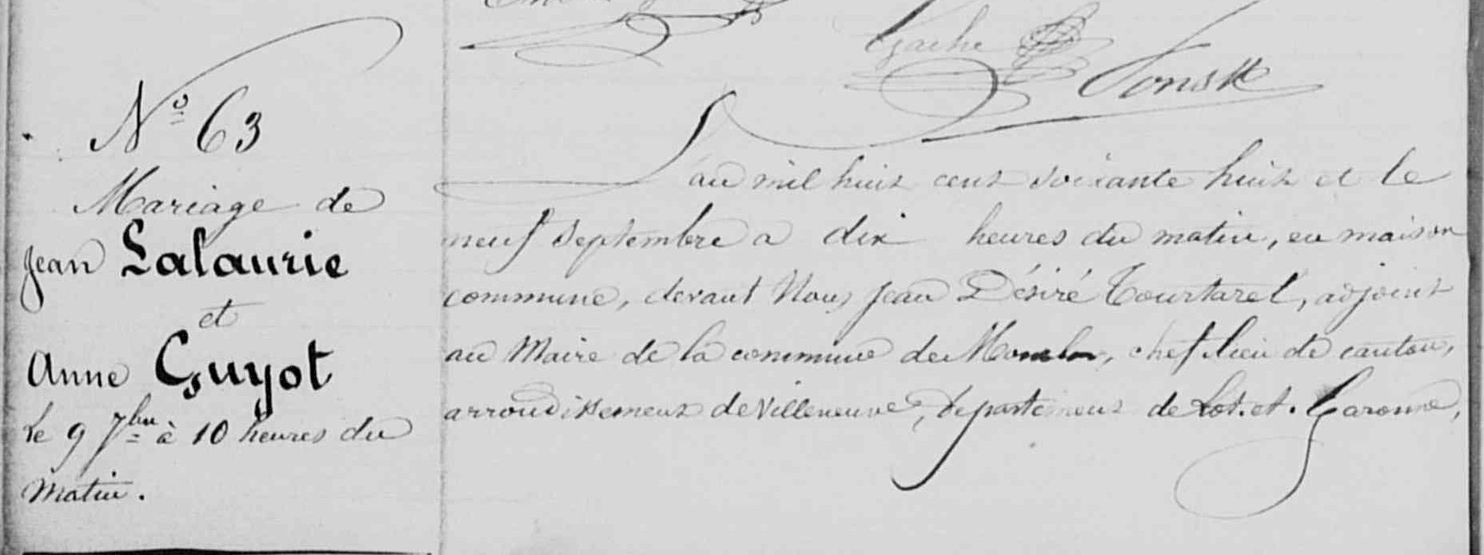 Gache Tonsk
N° 63
Mariage de
Jean Lalaurie
et
Anne Guyot
Le 9 7bre à 10 heures du
Matin.
L'an mil huit cent soixante huit et le
neuf septembre a dix heures du matin, en maison
commune, devant Nous Jean Désiré Tourtarel, adjoint
au Maire de la commune de, chef lieu de canton,
arrondissement de Villeneuve, Département de Lot.et.Garonne,